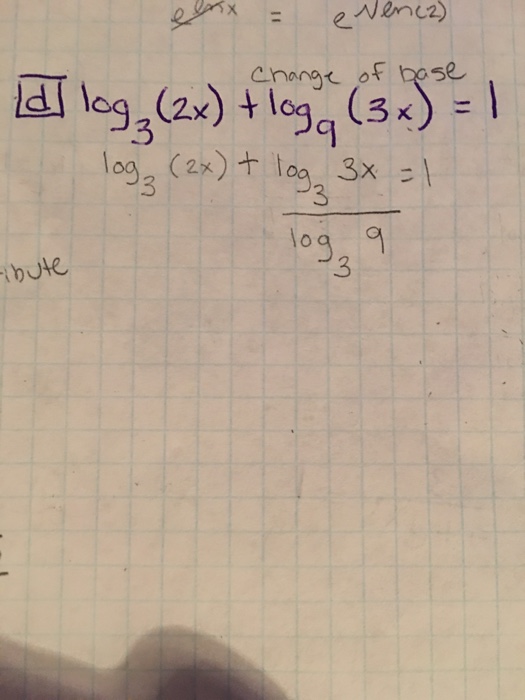 =
change of base
d log₃(2x) + log₉(3x) = 1
log₃(2x) + log₃ 3x = 1
log₃ 9
ibute